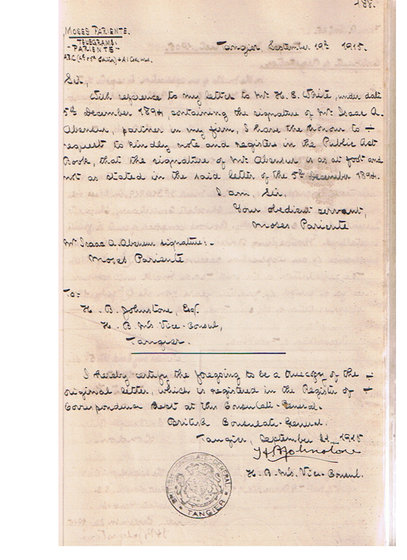 188.
MOSES PARIENTE.
TELEGRAMS:
- PARIENTE -
A.B.C.
Tangier, September 19th 1915.
Sir,
With reference to my letter to Mr. H. E. White, under date
5th December 1894, containing the signature of Mr. Isaac A.
Abensur, partner in my firm, I have the honour to —
request to kindly note and register in the Public Act
Book, that the signature of Mr. Abensur is as at foot and
not as stated in the said letter of the 5th December 1894.
I am, Sir,
Your obedient servant,
Moses Pariente
Mr. Isaac A. Abensur signature:-
Moses Pariente
To:-
H. B. Johnstone, Esqr.
H. B. M's Vice-Consul,
Tangier.
I hereby certify the foregoing to be a true copy of the —
original letter, which is registered in the Register of —
Correspondence Book at this Consulate-General.
British Consulate-General.
Tangier, September 21, 1915
H B Johnstone
H. B. M's. Vice-Consul.
CONSULATE-GENERAL
TANGIER